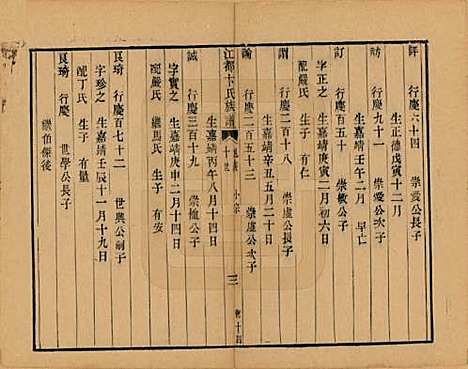 評 行慶六十四 崇愛公長子
生正德戊寅十二月
訪 行慶九十一 崇愛公次子
生嘉靖壬午二月 早亡
訂 行慶百五十 崇敏公子
字正之 生嘉靖庚寅二月初六日
配嚴氏 生子 有仁
謂 行慶二百十八 崇虛公長子
生嘉靖辛丑五月二十日
諭 行慶二百五十三 崇虛公次子
生嘉靖丙午八月十四日
江都卞氏族譜
十世
三
誠 行慶三百十九 崇 公子
字實之 生嘉靖庚申二月十四日
配嚴氏 繼馬氏 生子 有安
良琦 行慶百七十二 世興公嗣子
字珍之 生嘉靖壬辰十一月十九日
配丁氏 生子 有量
良琦 行慶 世學公長子
繼伯傑後